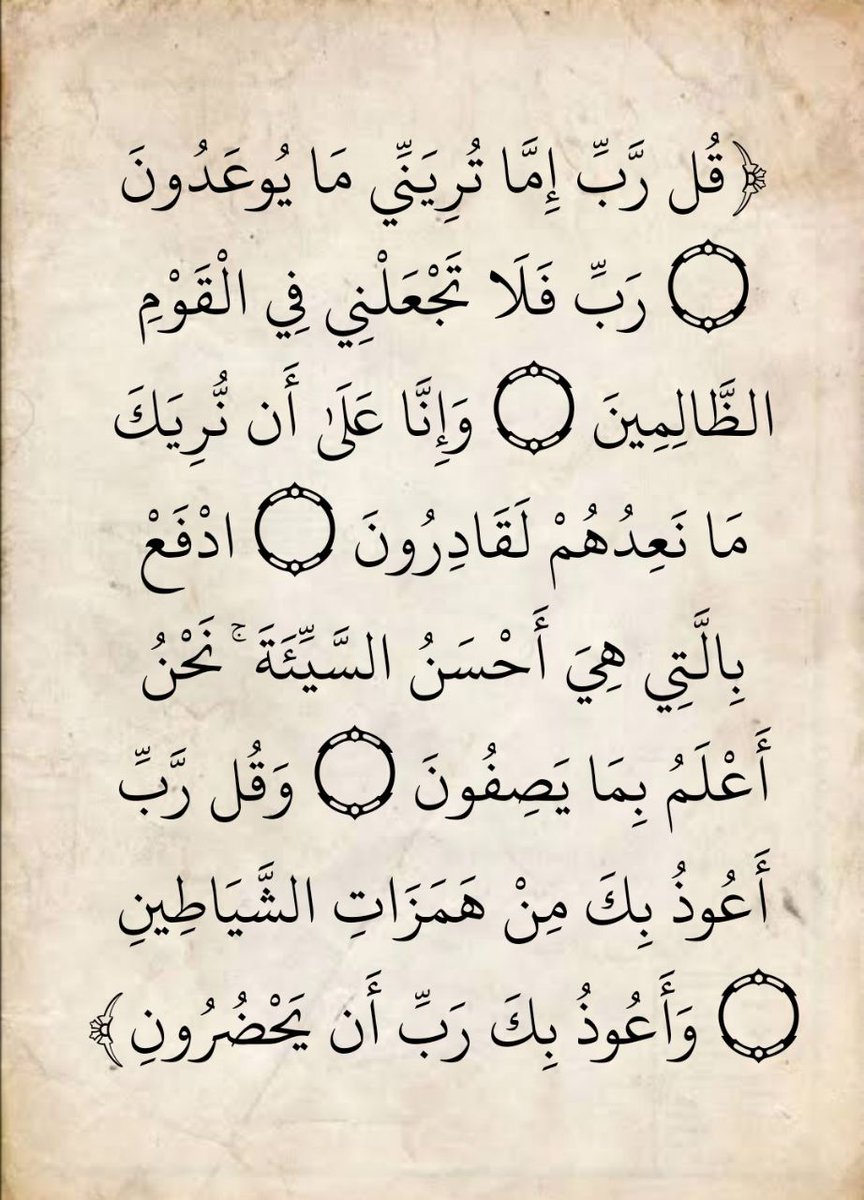 ﴿قُل رَّبِّ إِمَّا تُرِيَنِّي مَا يُوعَدُونَ
۝ رَبِّ فَلَا تَجْعَلْنِي فِي الْقَوْمِ
الظَّالِمِينَ ۝ وَإِنَّا عَلَىٰ أَن نُّرِيَكَ
مَا نَعِدُهُمْ لَقَادِرُونَ ۝ ادْفَعْ
بِالَّتِي هِيَ أَحْسَنُ السَّيِّئَةَ ۚ نَحْنُ
أَعْلَمُ بِمَا يَصِفُونَ ۝ وَقُل رَّبِّ
أَعُوذُ بِكَ مِنْ هَمَزَاتِ الشَّيَاطِينِ
۝ وَأَعُوذُ بِكَ رَبِّ أَن يَحْضُرُونِ﴾